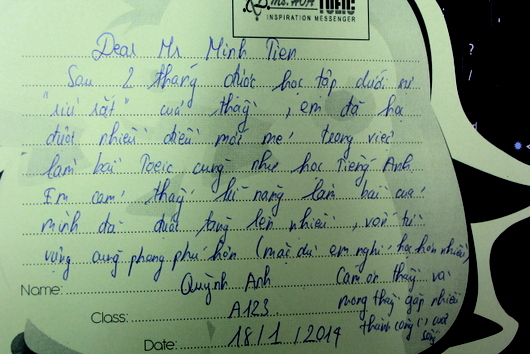 Ms. HOA TOEIC
INSPIRATION MESSENGER
Dear Mr Minh Tien
Sau 2 tháng được học tập dưới sự
"dìu dắt" của thầy, em đã học
được nhiều điều mới mẻ trong việc
làm bài Toeic cũng như học Tiếng Anh.
Em cảm thấy kĩ năng làm bài của
mình đã được tăng lên nhiều, vốn từ
vựng cũng phong phú hơn (mặc dù em nghỉ học hơn nhiều)
Name: Quỳnh Anh
Class: A123
Date: 18/1/2014
Cảm ơn thầy và
mong thầy gặp nhiều
thành công trong cuộc
sống